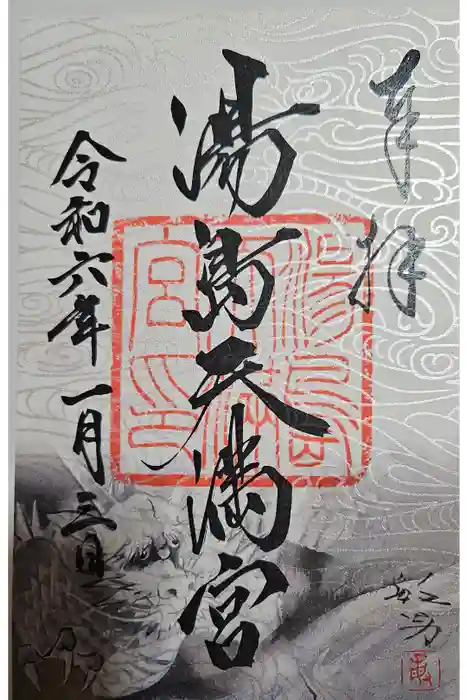 奉拝
湯島天満宮
令和六年一月三日
湯島天満宮印